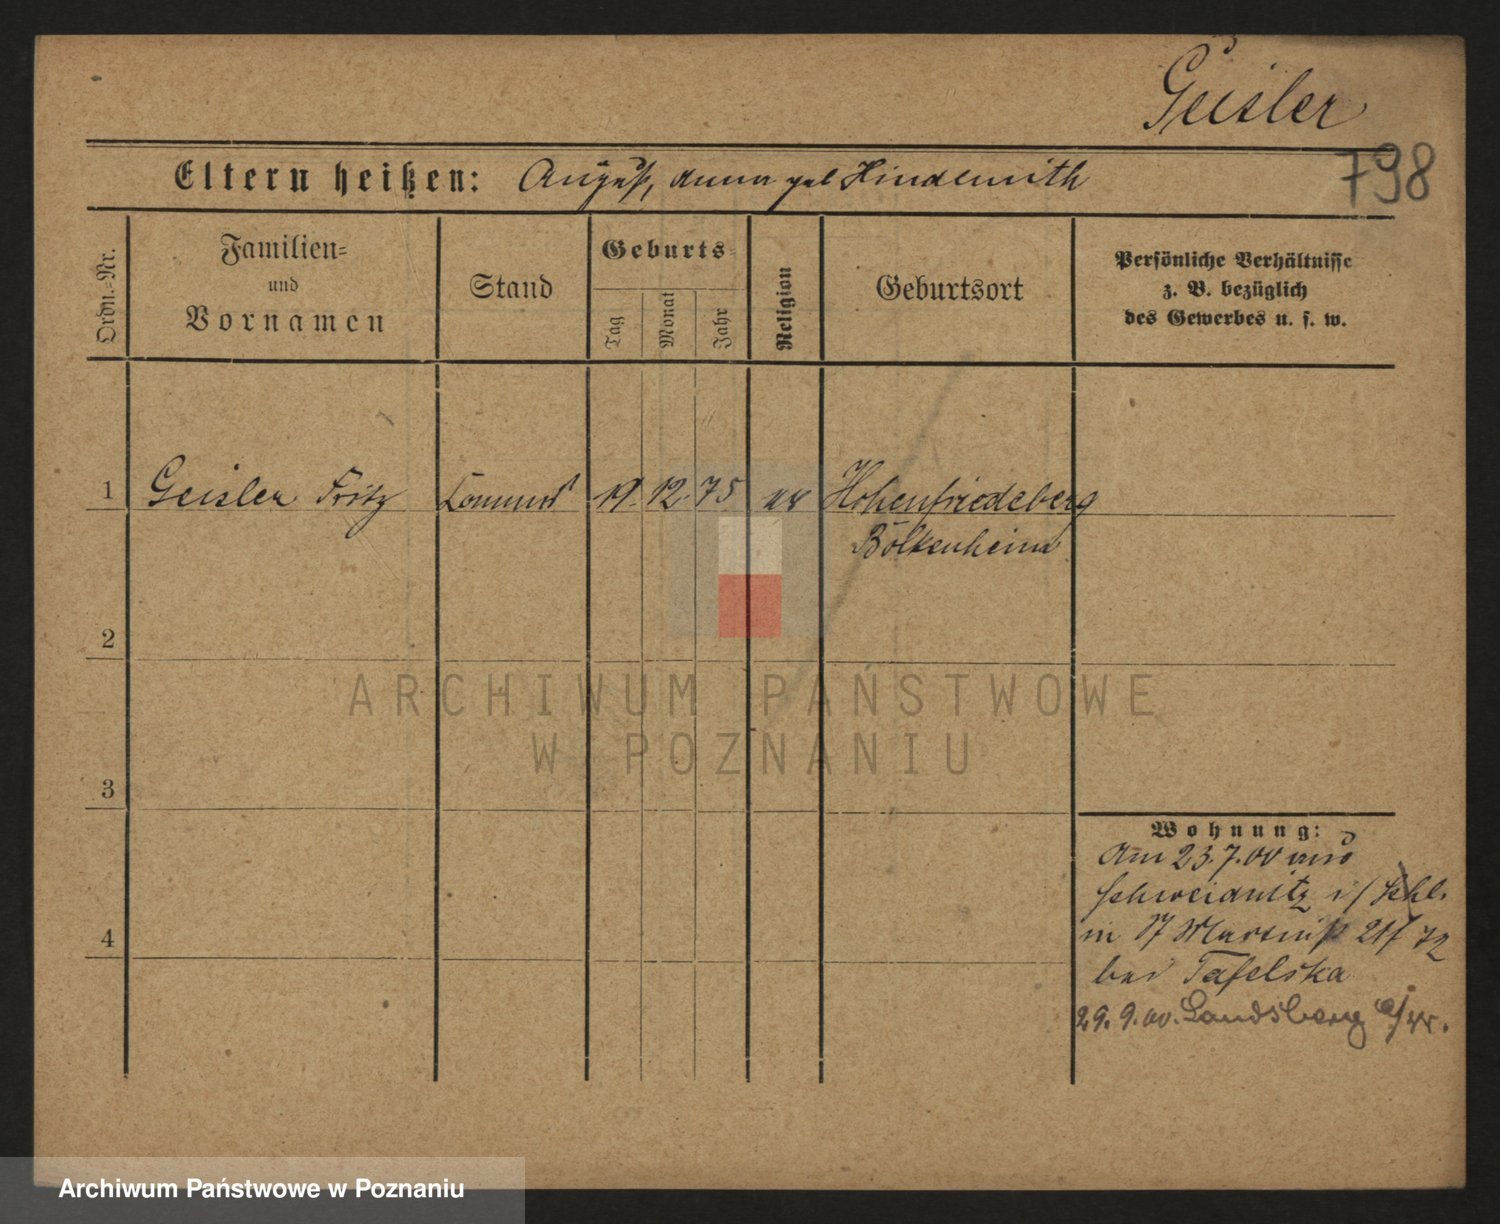 Geisler
Eltern heißen: August, Anna geb Hindemith
798
Ordn.-Nr.
Familien-
und
Vornamen
Stand
Geburts-
Tag
Monat
Jahr
Religion
Geburtsort
Persönliche Verhältnisse
z. B. bezüglich
des Gewerbes u. s. w.
1 Geisler Fritz 19. 12. 75 Hohenfriedeberg
Bolkenheim
2
3
4
Wohnung:
Am 23.7.00 aus
Schweidnitz i/ Schl.
in St Martinstr
bei Tafelska
29. 9. 00. Landsberg a/W.
ARCHIWUM PAŃSTWOWE
W POZNANIU
Archiwum Państwowe w Poznaniu